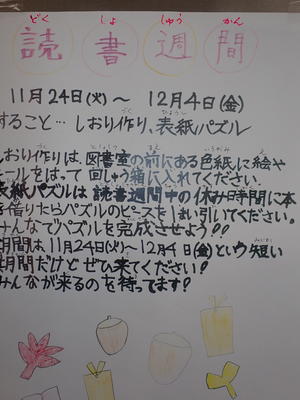 どく しょ しゅう かん
読書週間
11月24日(火)～ 12月4日(金)
すること…しおり作り、表紙パズル
しおり作りは、図書室の前にある色紙に絵や
ールをはって回しゅう箱に入れてください。
表紙パズルは読書週間中の休み時間に本
を借りたらパズルのピースを
引いてください。
みんなでパズルを完成させよう!!
期間は11月24日(火)～12月4日(金)という短い
期間だけどぜひ来てください!
みんなが来るのを待ってます!